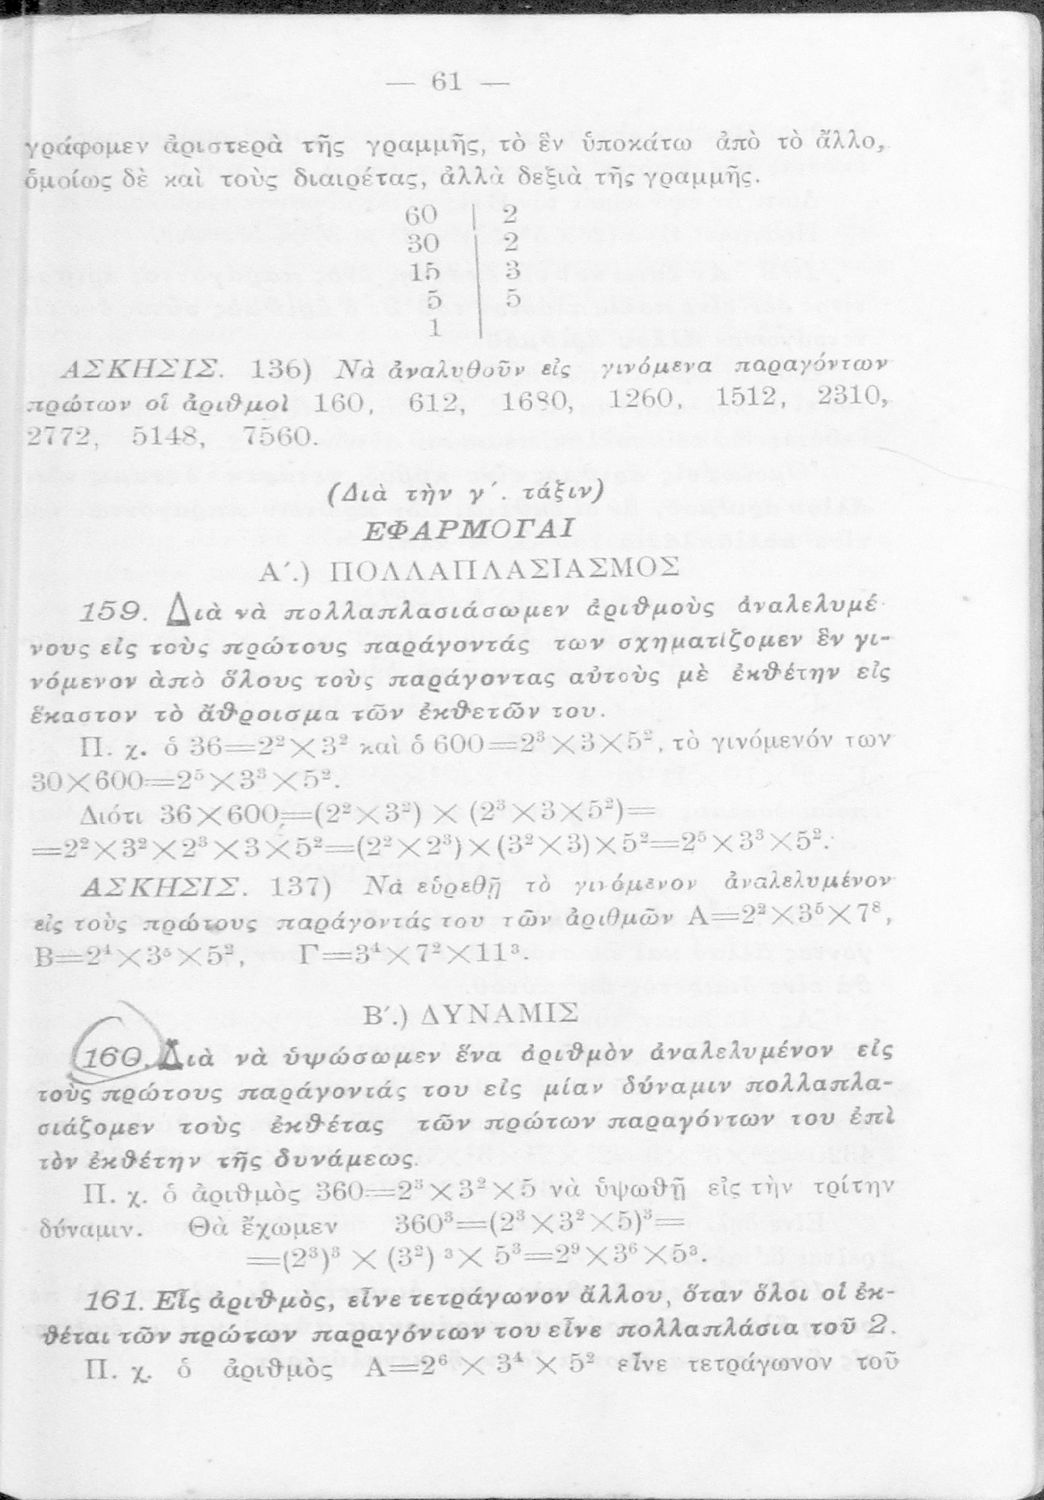 — 61 —
γράφομεν ἀριστερὰ τῆς γραμμῆς, τὸ ἓν ὑποκάτω ἀπὸ τὸ ἄλλο,
ὁμοίως δὲ καὶ τοὺς διαιρέτας, ἀλλὰ δεξιὰ τῆς γραμμῆς.
60 | 2
30 | 2
15 | 3
5 | 5
1 |
ΑΣΚΗΣΙΣ. 136) Νὰ ἀναλυθοῦν εἰς γινόμενα παραγόντων
πρώτων οἱ ἀριθμοὶ 160, 612, 1680, 1260, 1512, 2310,
2772, 5148, 7560.
(Διὰ τὴν γ΄. τάξιν)
ΕΦΑΡΜΟΓΑΙ
Α΄.) ΠΟΛΛΑΠΛΑΣΙΑΣΜΟΣ
159. Διὰ νὰ πολλαπλασιάσωμεν ἀριθμοὺς ἀναλελυμέ-
νους εἰς τοὺς πρώτους παράγοντάς των σχηματίζομεν ἓν γι-
νόμενον ἀπὸ ὅλους τοὺς παράγοντας αὐτοὺς μὲ ἐκθέτην εἰς
ἕκαστον τὸ ἄθροισμα τῶν ἐκθετῶν του.
Π. χ. ὁ 36=2²×3² καὶ ὁ 600=2³×3×5², τὸ γινόμενόν των
30×600=2⁵×3³×5².
Διότι 36×600=(2²×3²) × (2³×3×5²)=
=2²×3²×2³×3×5²=(2²×2³)×(3²×3)×5²=2⁵×3³×5².
ΑΣΚΗΣΙΣ. 137) Νὰ εὑρεθῇ τὸ γινόμενον ἀναλελυμένον
εἰς τοὺς πρώτους παράγοντάς του τῶν ἀριθμῶν Α=2²×3⁵×7⁸,
Β=2⁴×3⁵×5², Γ=3⁴×7²×11³.
Β΄.) ΔΥΝΑΜΙΣ
160. Διὰ νὰ ὑψώσωμεν ἕνα ἀριθμὸν ἀναλελυμένον εἰς
τοὺς πρώτους παράγοντάς του εἰς μίαν δύναμιν πολλαπλα-
σιάζομεν τοὺς ἐκθέτας τῶν πρώτων παραγόντων του ἐπὶ
τὸν ἐκθέτην τῆς δυνάμεως.
Π. χ. ὁ ἀριθμὸς 360=2³×3²×5 νὰ ὑψωθῇ εἰς τὴν τρίτην
δύναμιν. Θὰ ἔχωμεν 360³=(2³×3²×5)³=
=(2³)³ × (3²) ³× 5³=2⁹×3⁶×5³.
161. Εἷς ἀριθμὸς, εἶνε τετράγωνον ἄλλου, ὅταν ὅλοι οἱ ἐκ-
θέται τῶν πρώτων παραγόντων του εἶνε πολλαπλάσια τοῦ 2.
Π. χ. ὁ ἀριθμὸς Α=2⁶ × 3⁴ × 5² εἶνε τετράγωνον τοῦ